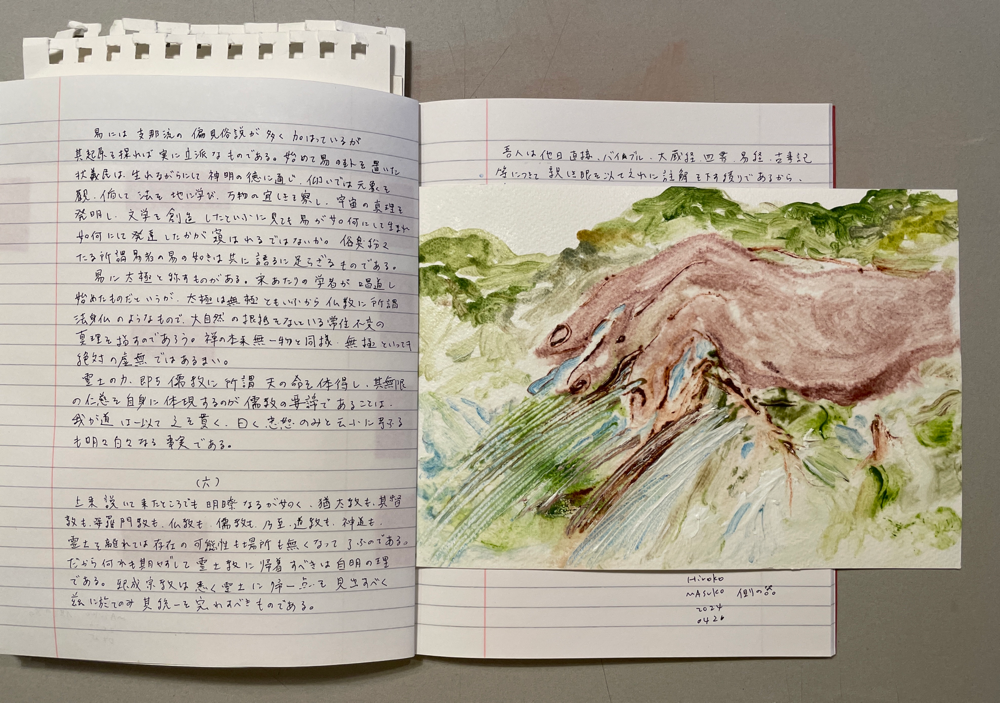 易には支那流の偏見俗説が多く加はっているが
其起原を探れば実に立派なものである。始めて易の卦を置いた
伏羲氏は、生れながらにして神明の徳に通じ、仰いでは元象を
観、俯して法を地に学び、万物の宜しきを察し、宇宙の真理を
発明し、文字を創造したといふに見ても易が如何にして生まれ
如何にして発達したかが窺はれるではないか。俗臭紛々
たる所謂易者の易の如きは共に語るに足らざるものである。
易に太極と称すものがある。宋あたりの学者が唱道し
始めたものだというが、太極は無極ともいふから仏教に所謂
法身仏のようなもので、大自然の根拠をなしている常住不変の
真理を指すのであろう。禅の本来無一物と同様、無極といっても
絶対の虚無ではあるまい。
霊土の力、即ち儒教に所謂天の命を体得し、其無限
の仁慈を自身に体現するのが儒教の要諦であることは、
我が道は一以て之を貫く、曰く忠恕のみと云ふに考ふる
も明々白々なる事実である。
(六)
上来説いて来たところでも明瞭なるが如く、猶太教も、基督
教も、婆羅門教も、仏教も、儒教も、乃至、道教も、神道も、
霊土を離れては存在の可能性も場所も無くなって了ふのである。
だから何れも期せずして霊土教に帰着すべきは自明の理
である。既成宗教は悉く霊土に帰一点を見出すべく
茲に於てのみ其統一を完れすべきものである。
吾人は他日直接、バイブル、大蔵経、四書、易経、古事記
等につきて訳し眼を以てそれに註解を下す積りであるから、
Hiroko
MASUKO 個の器
2024
0426